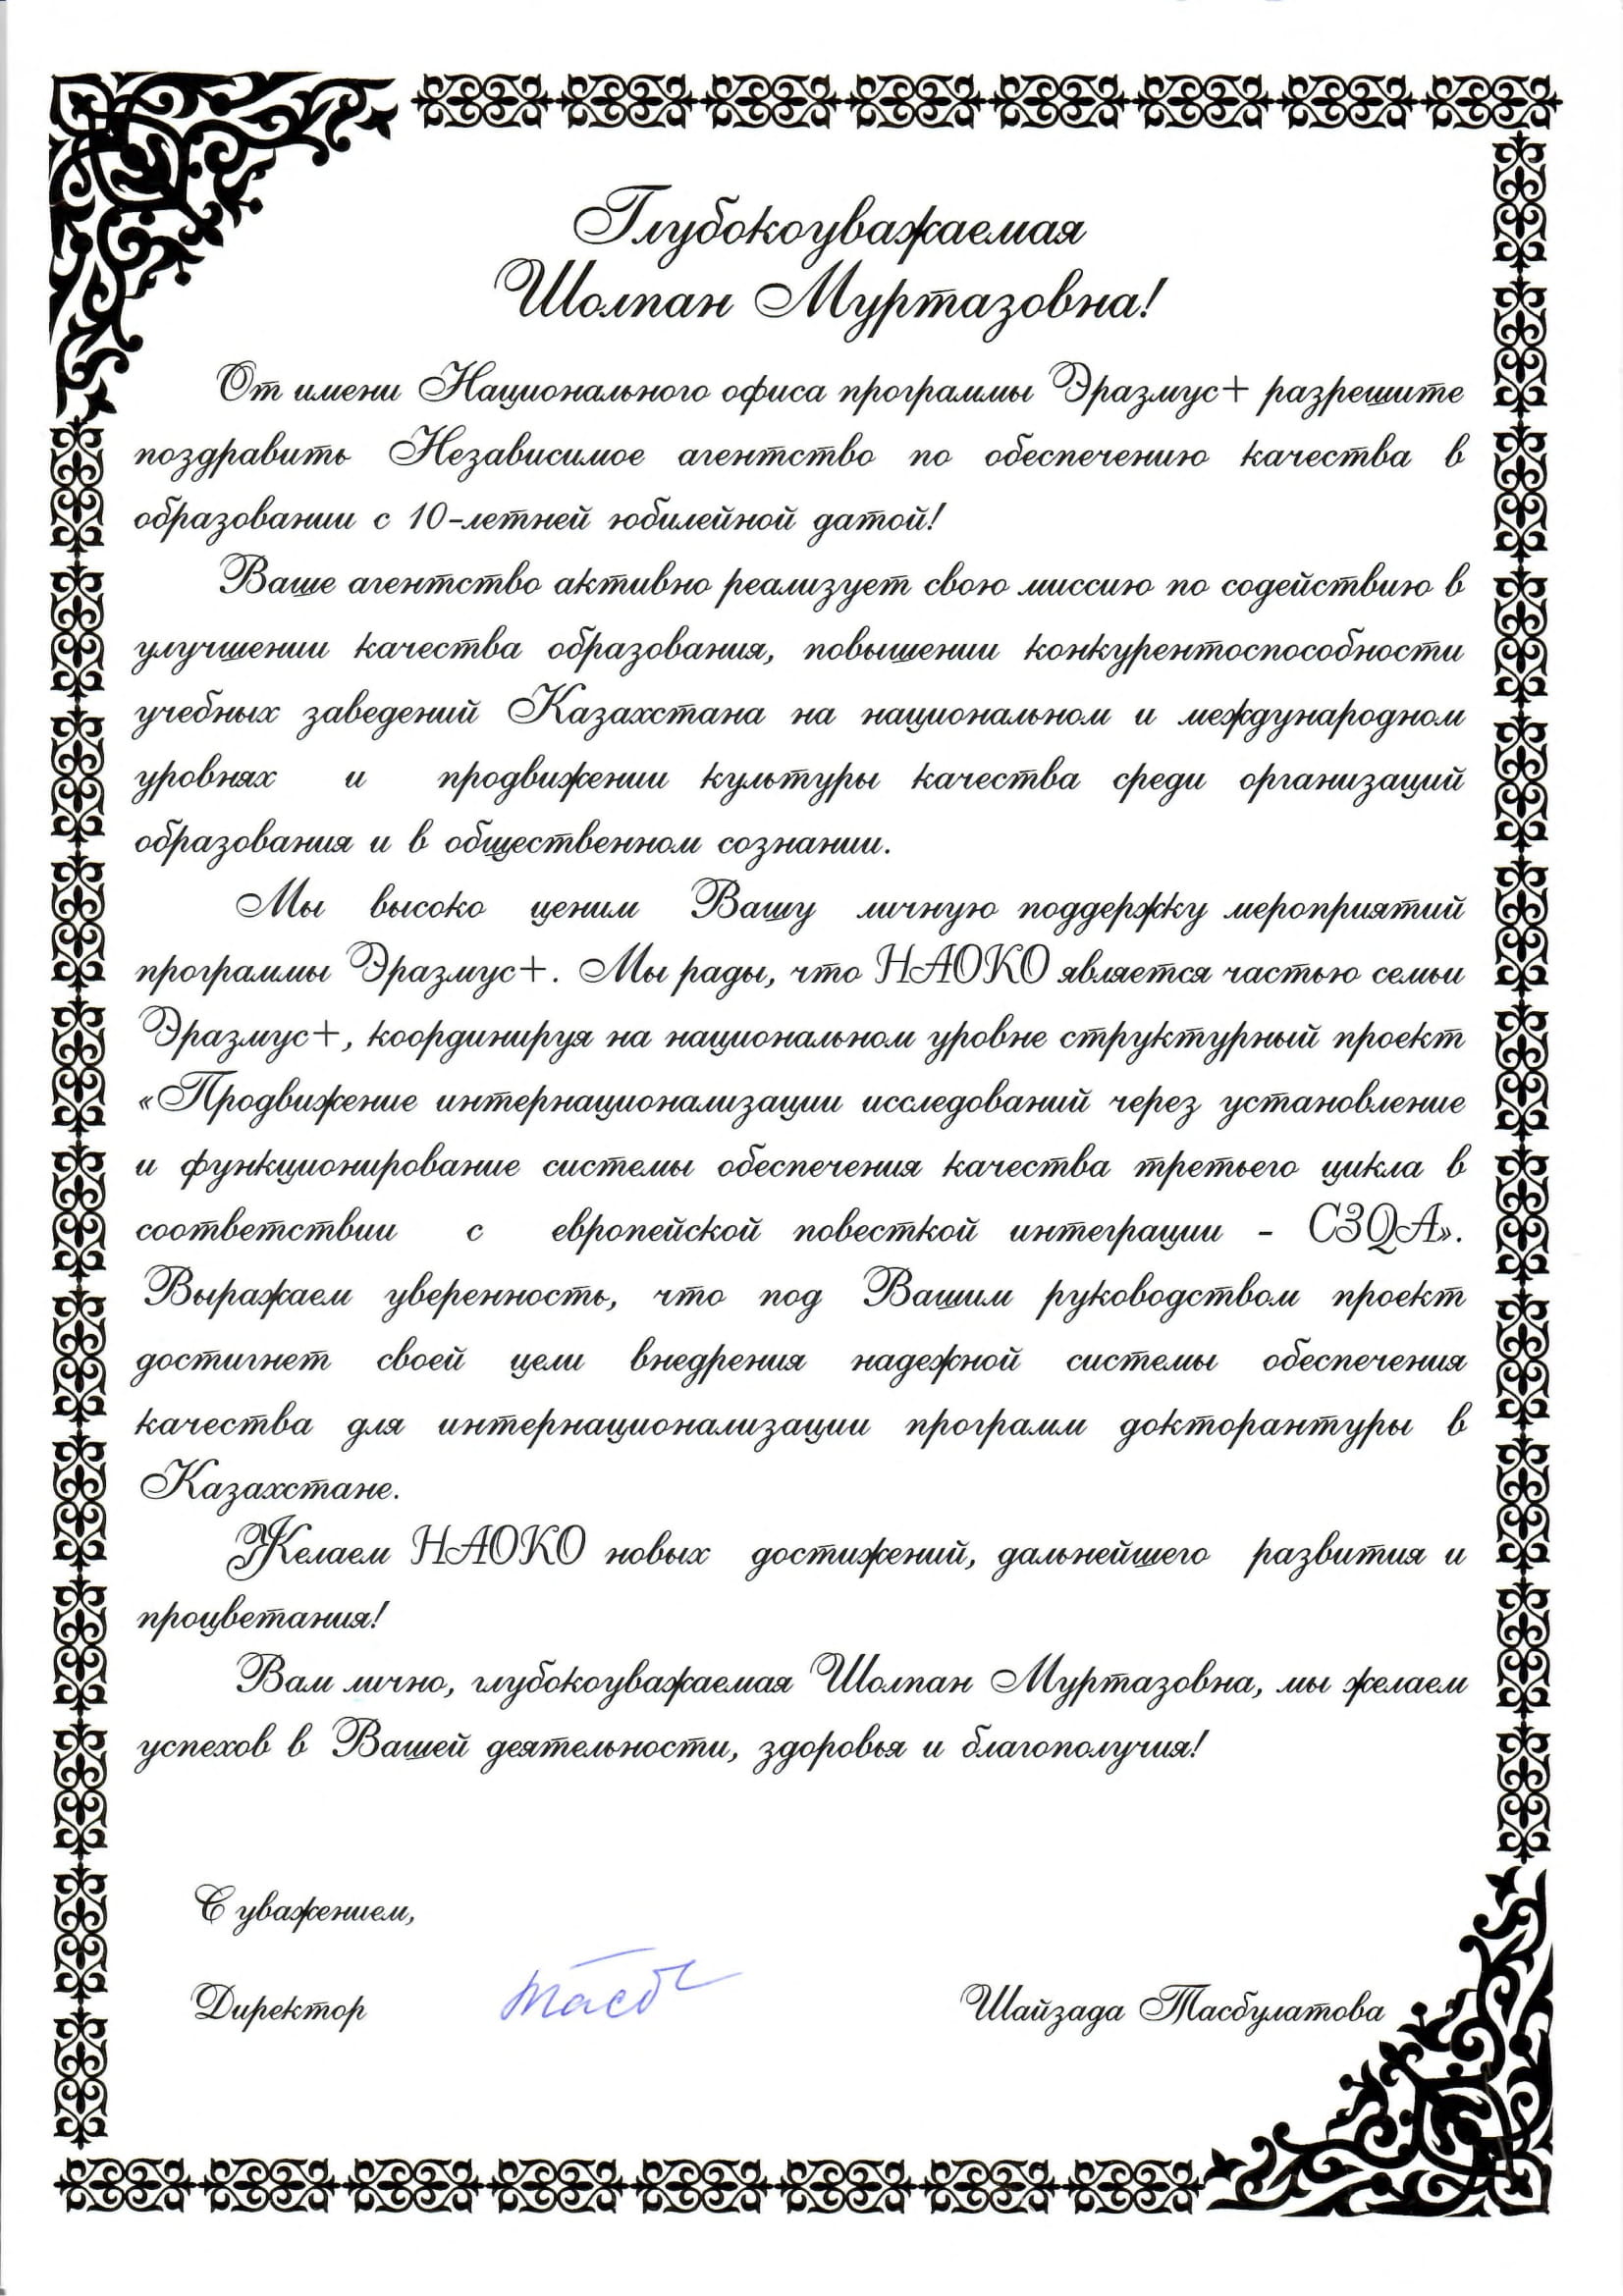 Глубокоуважаемая
Шолпан Муртазовна!
От имени Национального офиса программы Эразмус+ разрешите
поздравить Независимое агентство по обеспечению качества в
образовании с 10-летней юбилейной датой!
Ваше агентство активно реализует свою миссию по содействию в
улучшении качества образования, повышении конкурентоспособности
учебных заведений Казахстана на национальном и международном
уровнях и продвижении культуры качества среди организаций
образования и в общественном сознании.
Мы высоко ценим Вашу личную поддержку мероприятий
программы Эразмус+. Мы рады, что НАОКО является частью семьи
Эразмус+, координируя на национальном уровне структурный проект
«Продвижение интернационализации исследований через установление
и функционирование системы обеспечения качества третьего цикла в
соответствии с европейской повесткой интеграции - C3QA».
Выражаем уверенность, что под Вашим руководством проект
достигнет своей цели внедрения надежной системы обеспечения
качества для интернационализации программ докторантуры в
Казахстане.
Желаем НАОКО новых достижений, дальнейшего развития и
процветания!
Вам лично, глубокоуважаемая Шолпан Муртазовна, мы желаем
успехов в Вашей деятельности, здоровья и благополучия!
С уважением,
Директор Тасб Шайзада Тасбулатова